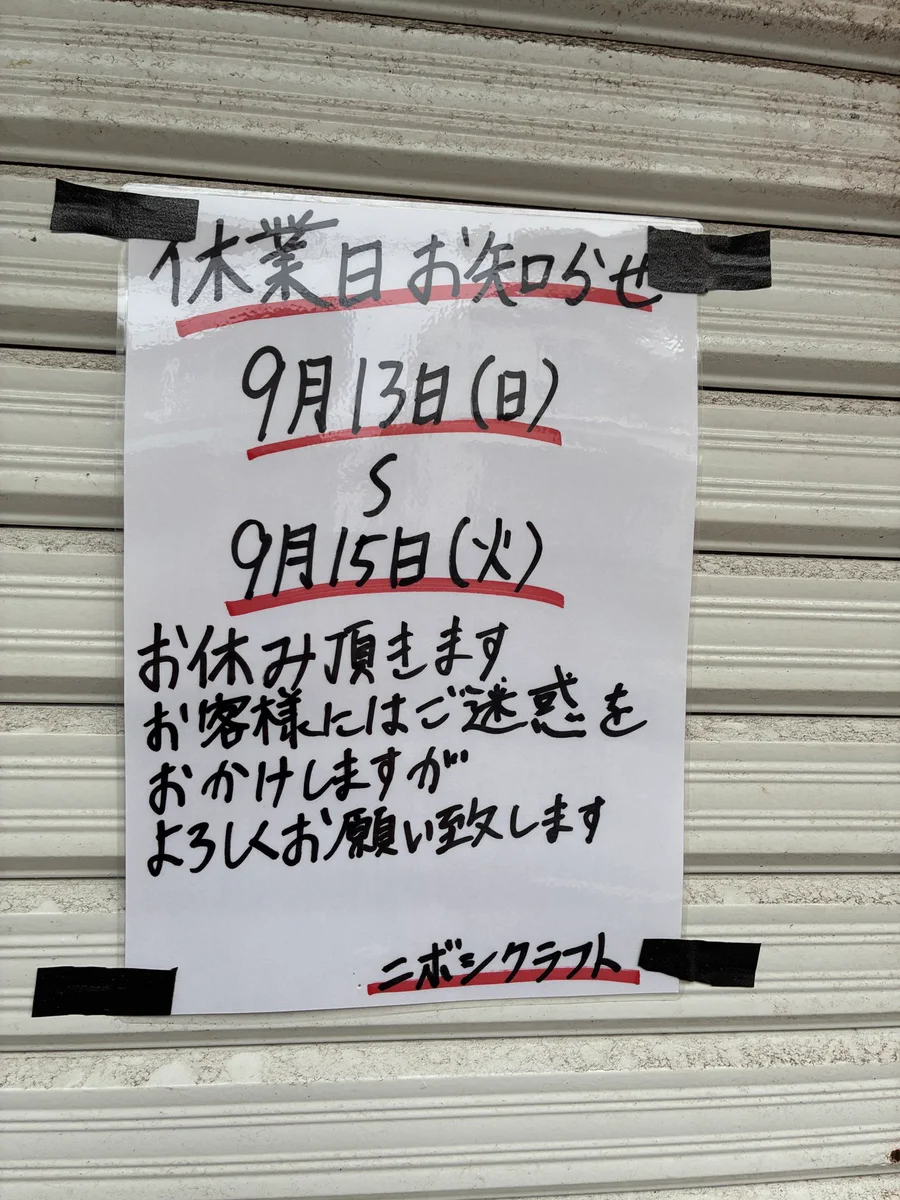 休業日お知らせ
9月13日(日)
〜
9月15日(火)
お休み頂きます
お客様にはご迷惑を
おかけしますが
よろしくお願い致します
ニボシクラフト